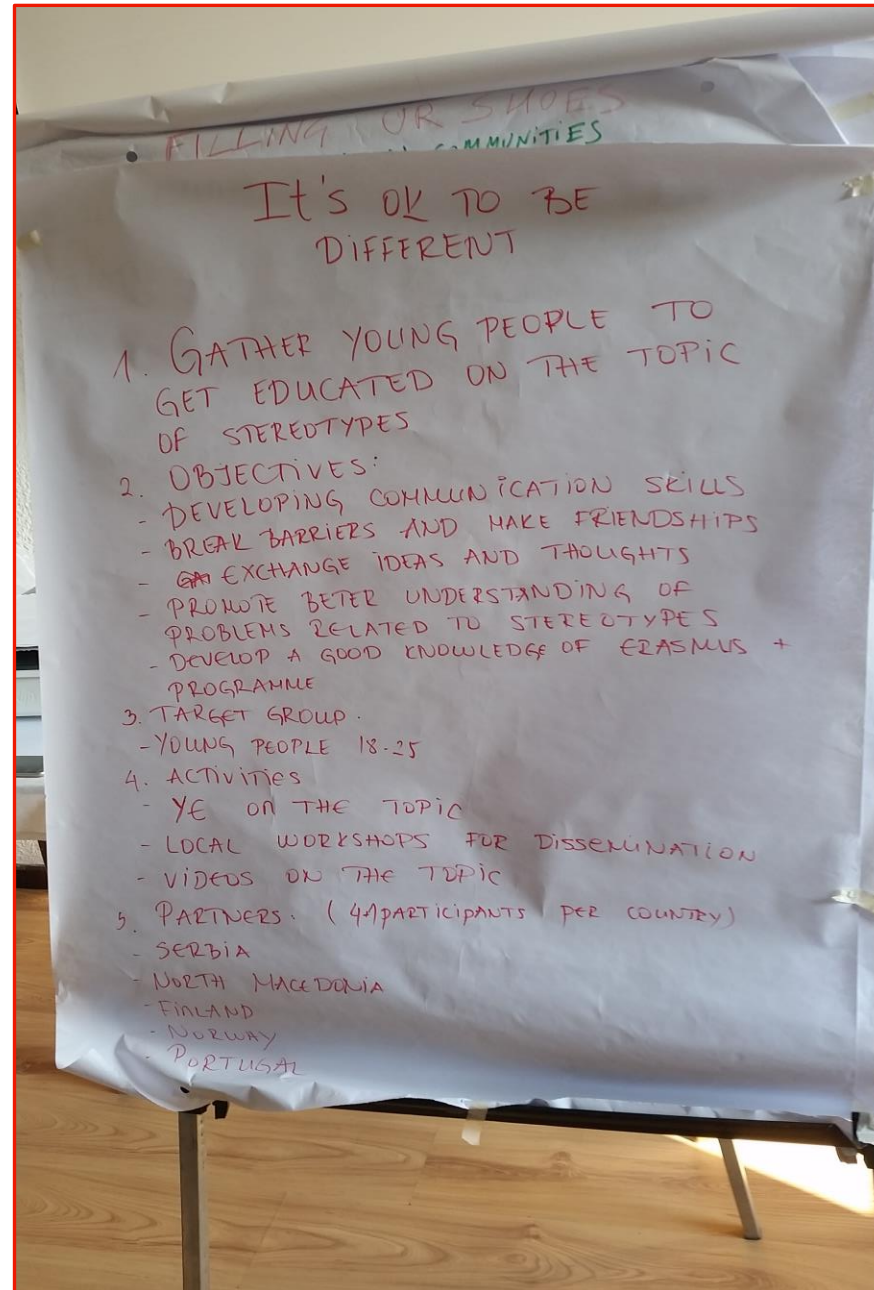 FILLING OR SHOES
COMMUNITIES
It's OK TO BE
DIFFERENT
1. GATHER YOUNG PEOPLE TO
GET EDUCATED ON THE TOPIC
OF STEREOTYPES
2. OBJECTIVES:
- DEVELOPING COMMUNICATION SKILLS
- BREAK BARRIERS AND MAKE FRIENDSHIPS
- EXCHANGE IDEAS AND THOUGHTS
- PROMOTE BETER UNDERSTANDING OF
PROBLEMS RELATED TO STEREOTYPES
- DEVELOP A GOOD KNOWLEDGE OF ERASMUS +
PROGRAMME
3. TARGET GROUP.
- YOUNG PEOPLE 18-25
4. ACTIVITIES
- YE ON THE TOPIC
- LOCAL WORKSHOPS FOR DISSEMINATION
- VIDEOS ON THE TOPIC
5. PARTNERS. (4+1 PARTICIPANTS PER COUNTRY)
- SERBIA
- NORTH MACEDONIA
- FINLAND
- NORWAY
- PORTUGAL